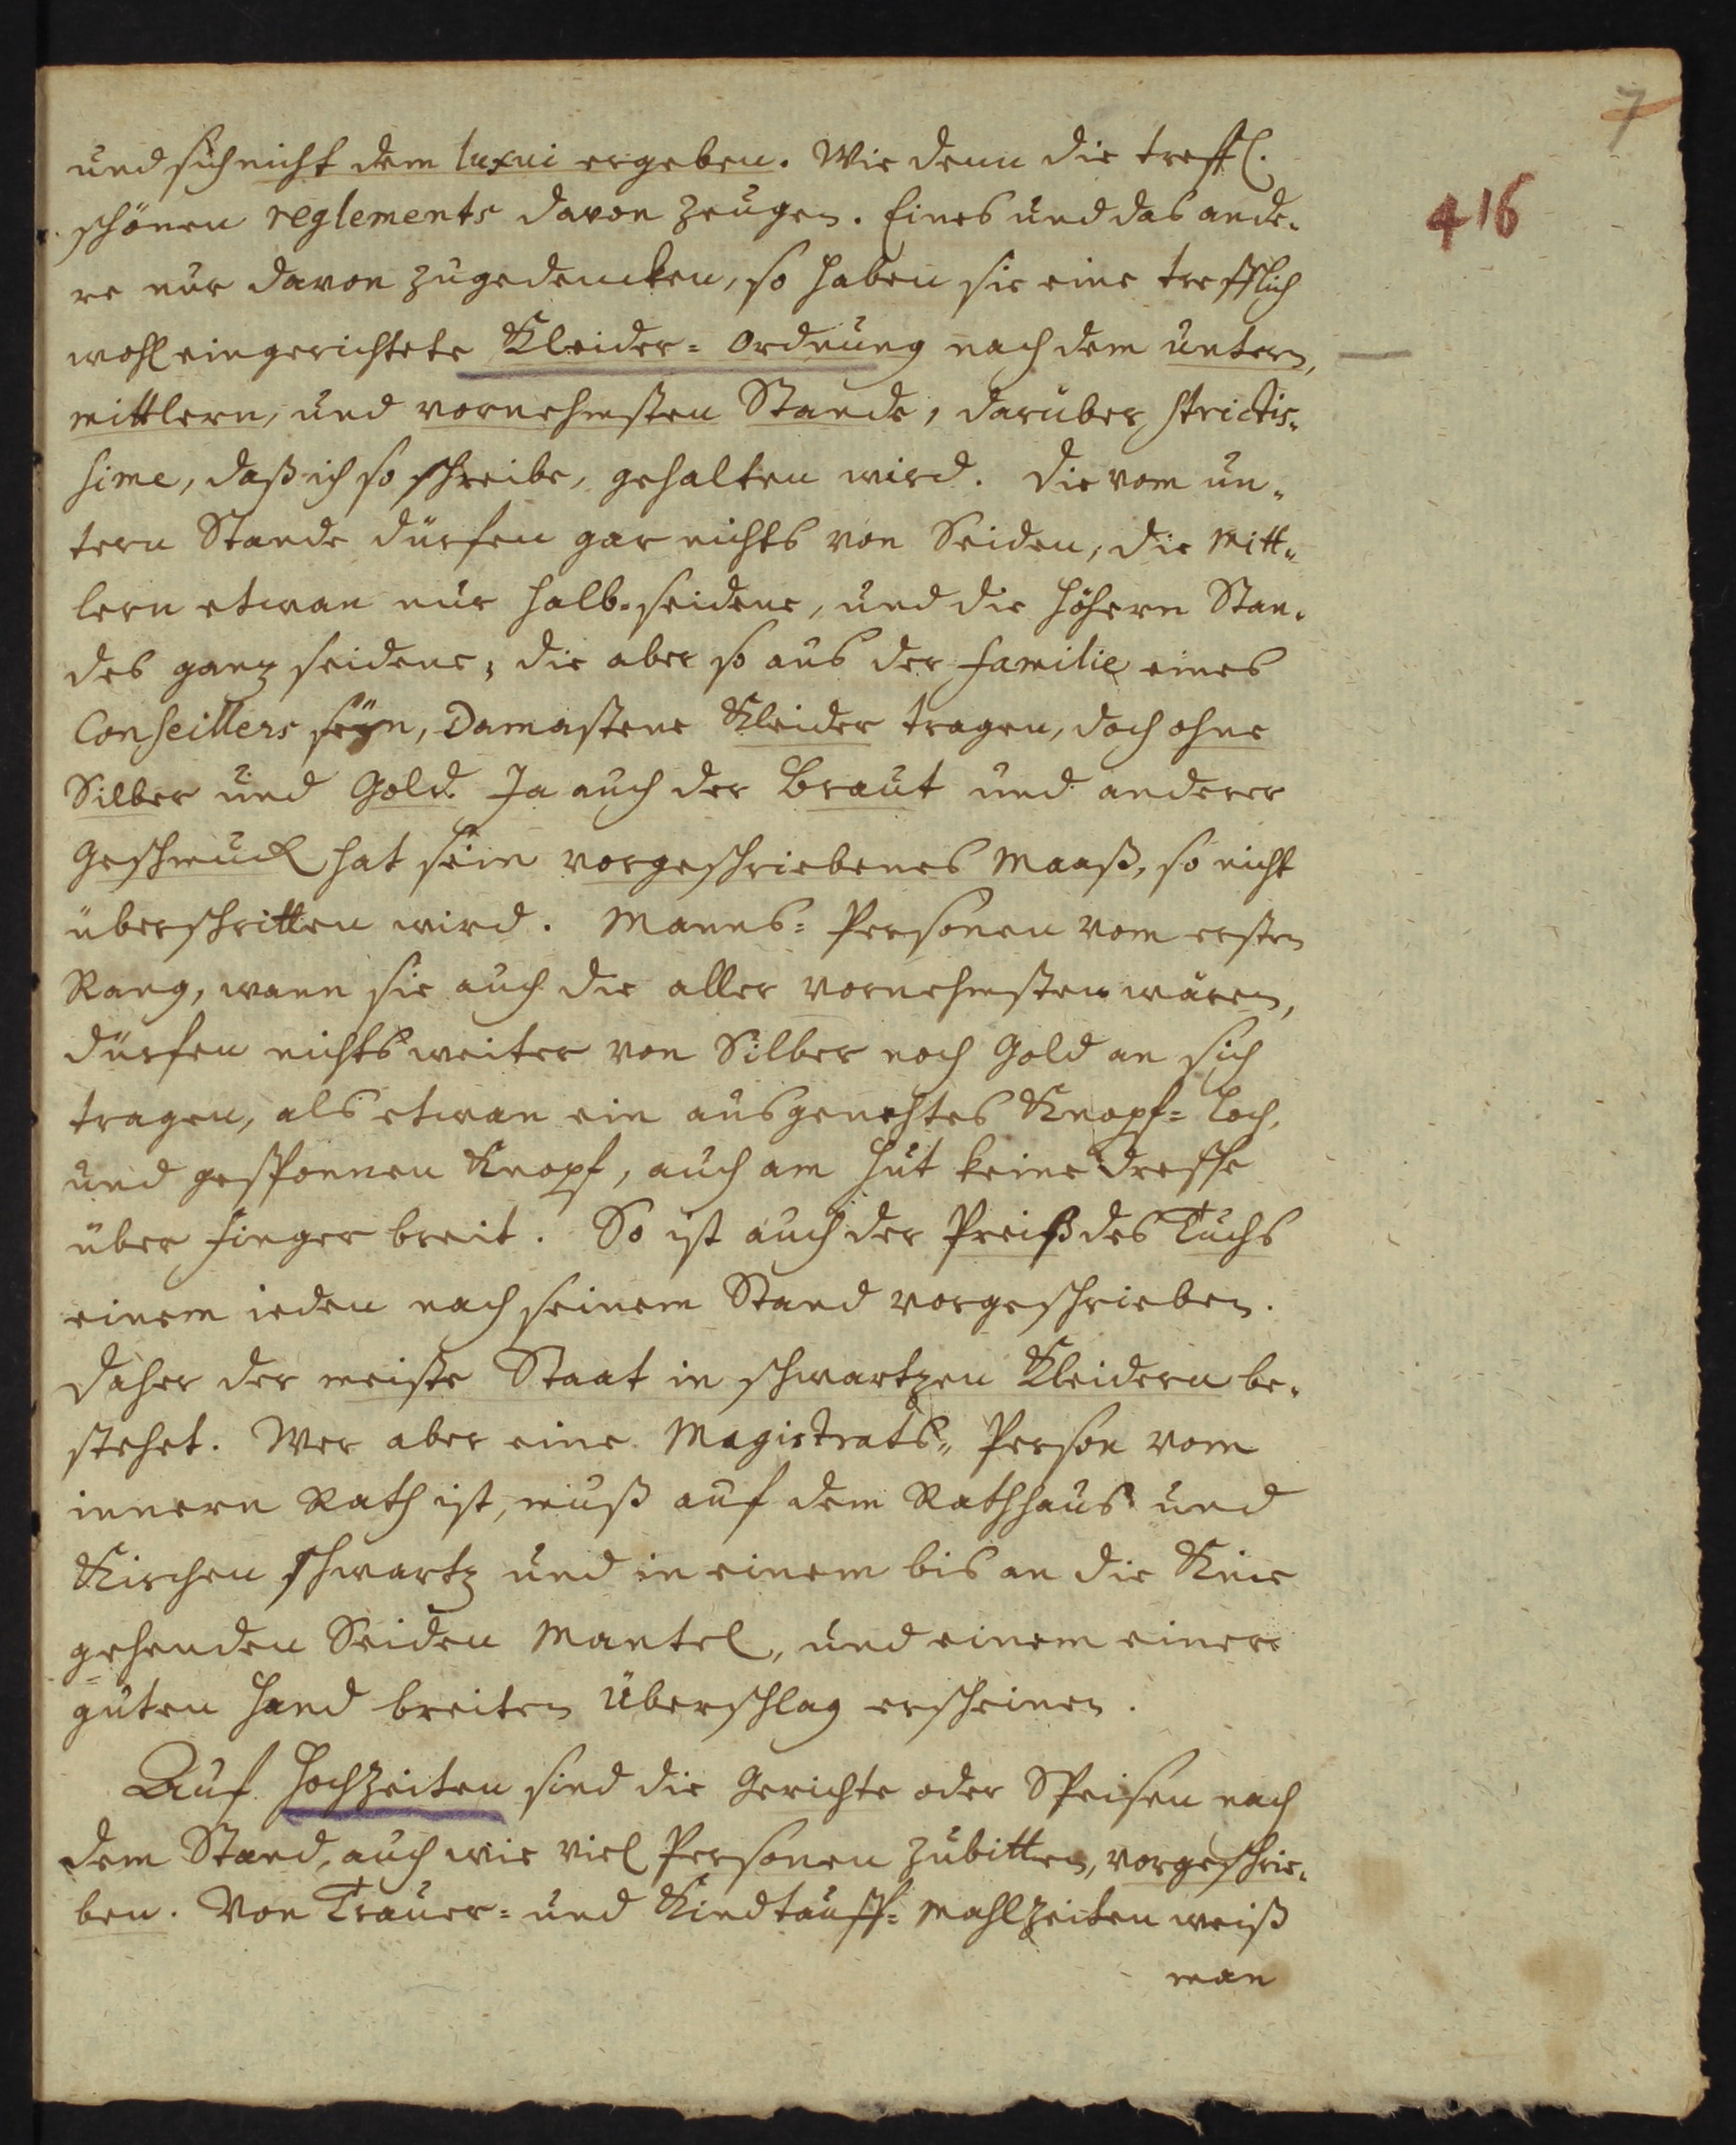 7
416
und sich nicht dem luxui ergeben. Wie denn die treffl.
schönen reglements davon zeugen. Eines und das ande-
re nur davon zugedencken, so haben sie eine trefflich
wohl eingerichtete Kleider= Ordnung nach dem untern,
mittlern, und vornehmsten Stande, darüber strictis-
sime, daß ich so schreibe, gehalten wird. Die vom un-
tern Stande dürfen gar nichts von Seiden, die Mitt-
lern etwan nur halb-seidene, und die höhern Stan-
des ganz seidene, die aber so aus der Familie eines
Conseillers seÿn, Damastene Kleider tragen, doch ohne
Silber und Gold. Ja auch der Braut und anderer
Geschmuck hat sein vorgeschriebenes Maaß, so nicht
überschritten wird. Manns= Personen vom ersten
Rang, wann sie auch die aller vornehmsten wären,
dürfen nichts weiter von Silber noch Gold an sich
tragen, als etwan ein ausgenehtes Knopf= Loch,
und gesponnen Knopf, auch am Hut keine Dresse
über Finger breit. So ist auch der Preiß des Tuchs
einem ieden nach seinem Stand vorgeschrieben.
Daher der meiste Staat in schwartzen Kleidern be-
stehet. Wer aber eine Magistrats- Person vom
innern Rath ist, muß auf dem Rathhaus und
Kirchen schwartz und in einem bis an die Knie
gehenden Seiden Mantel, und einem einer
guten Hand breiten Überschlag erscheinen.
Auf Hochzeiten sind die Gerichte oder Speisen nach
dem Stand, auch wie viel Personen zubitten, vorgeschrie-
ben. Von Trauer= und Kindtauff= Mahlzeiten weiß
man